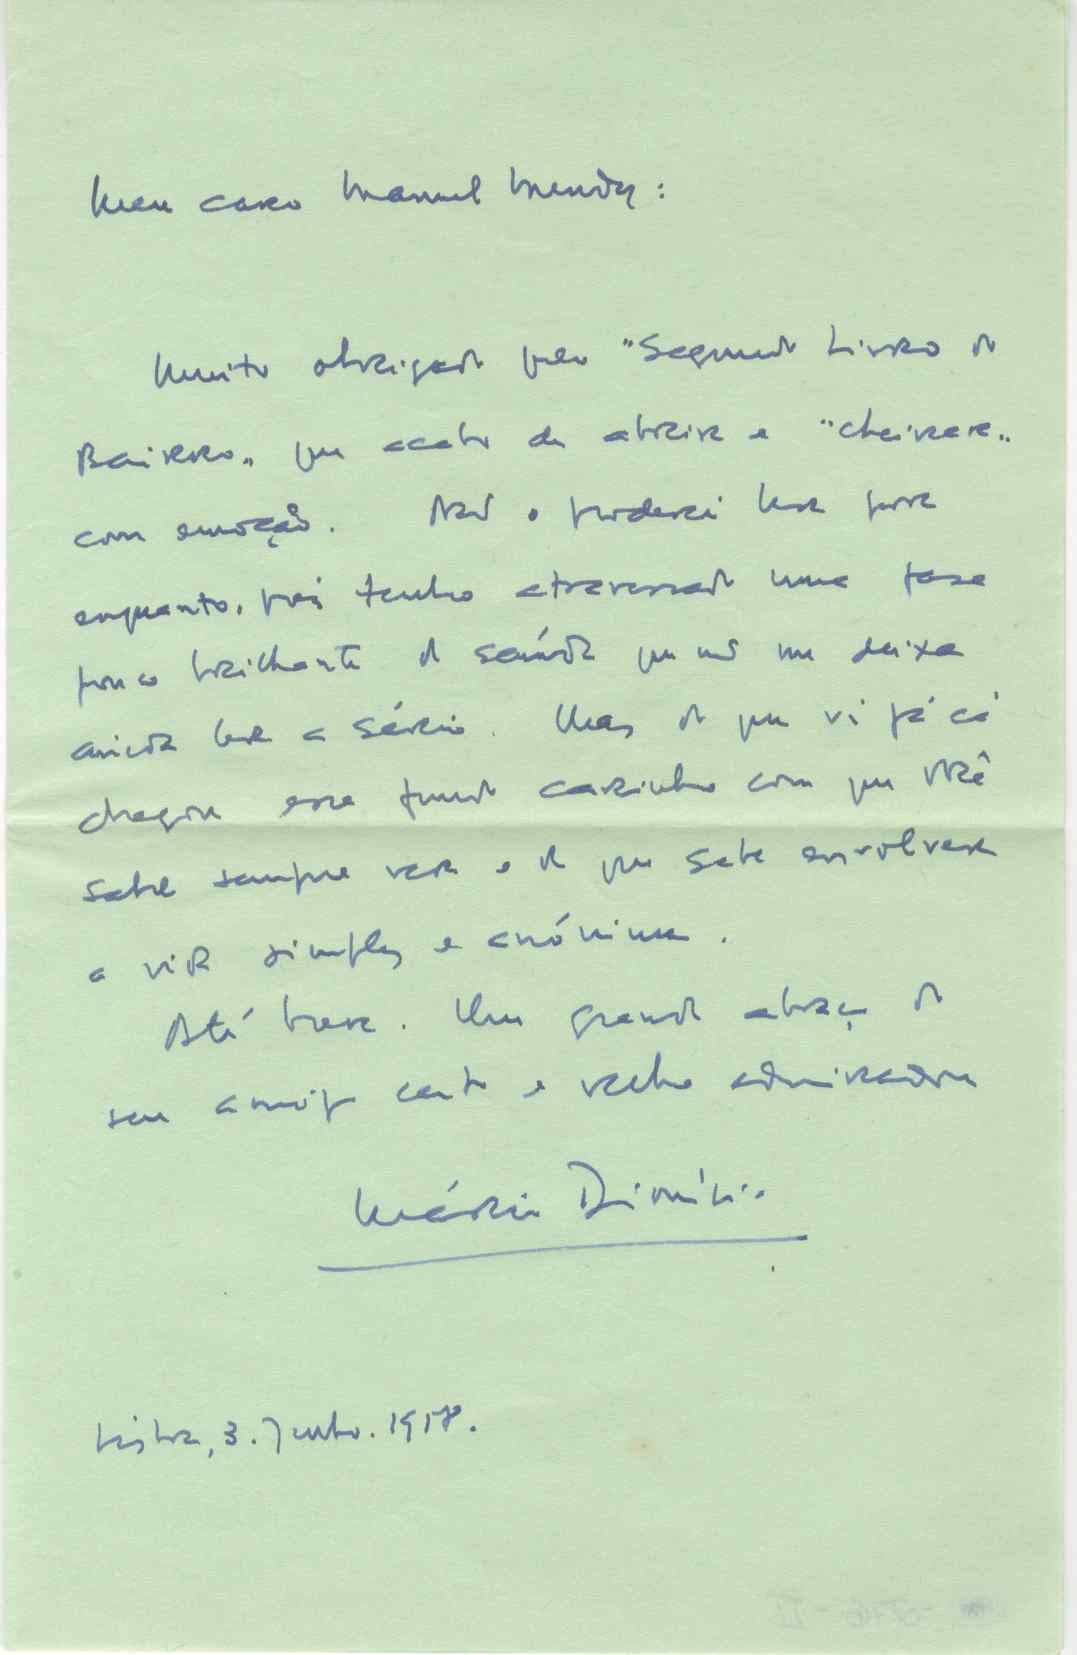 Meu caro Manuel Mendes:
Muito obrigado pelo "Segundo Livro do
Bairro" que acabo de abrir e "cheirar"
com emoção. Não o poderei ler por
enquanto, pois tenho atravessado uma fase
pouco brilhante de saúde que não me deixa
ainda ler a sério. Mas do que vi já cá
chegou esse fundo carinho com que você
sabe sempre ver e de que sabe envolver
a vida simples e anónima.
Até breve. Um grande abraço do
seu amigo certo e velho admirador
Mário Dionísio
Lisboa, 3. Julho. 1958.